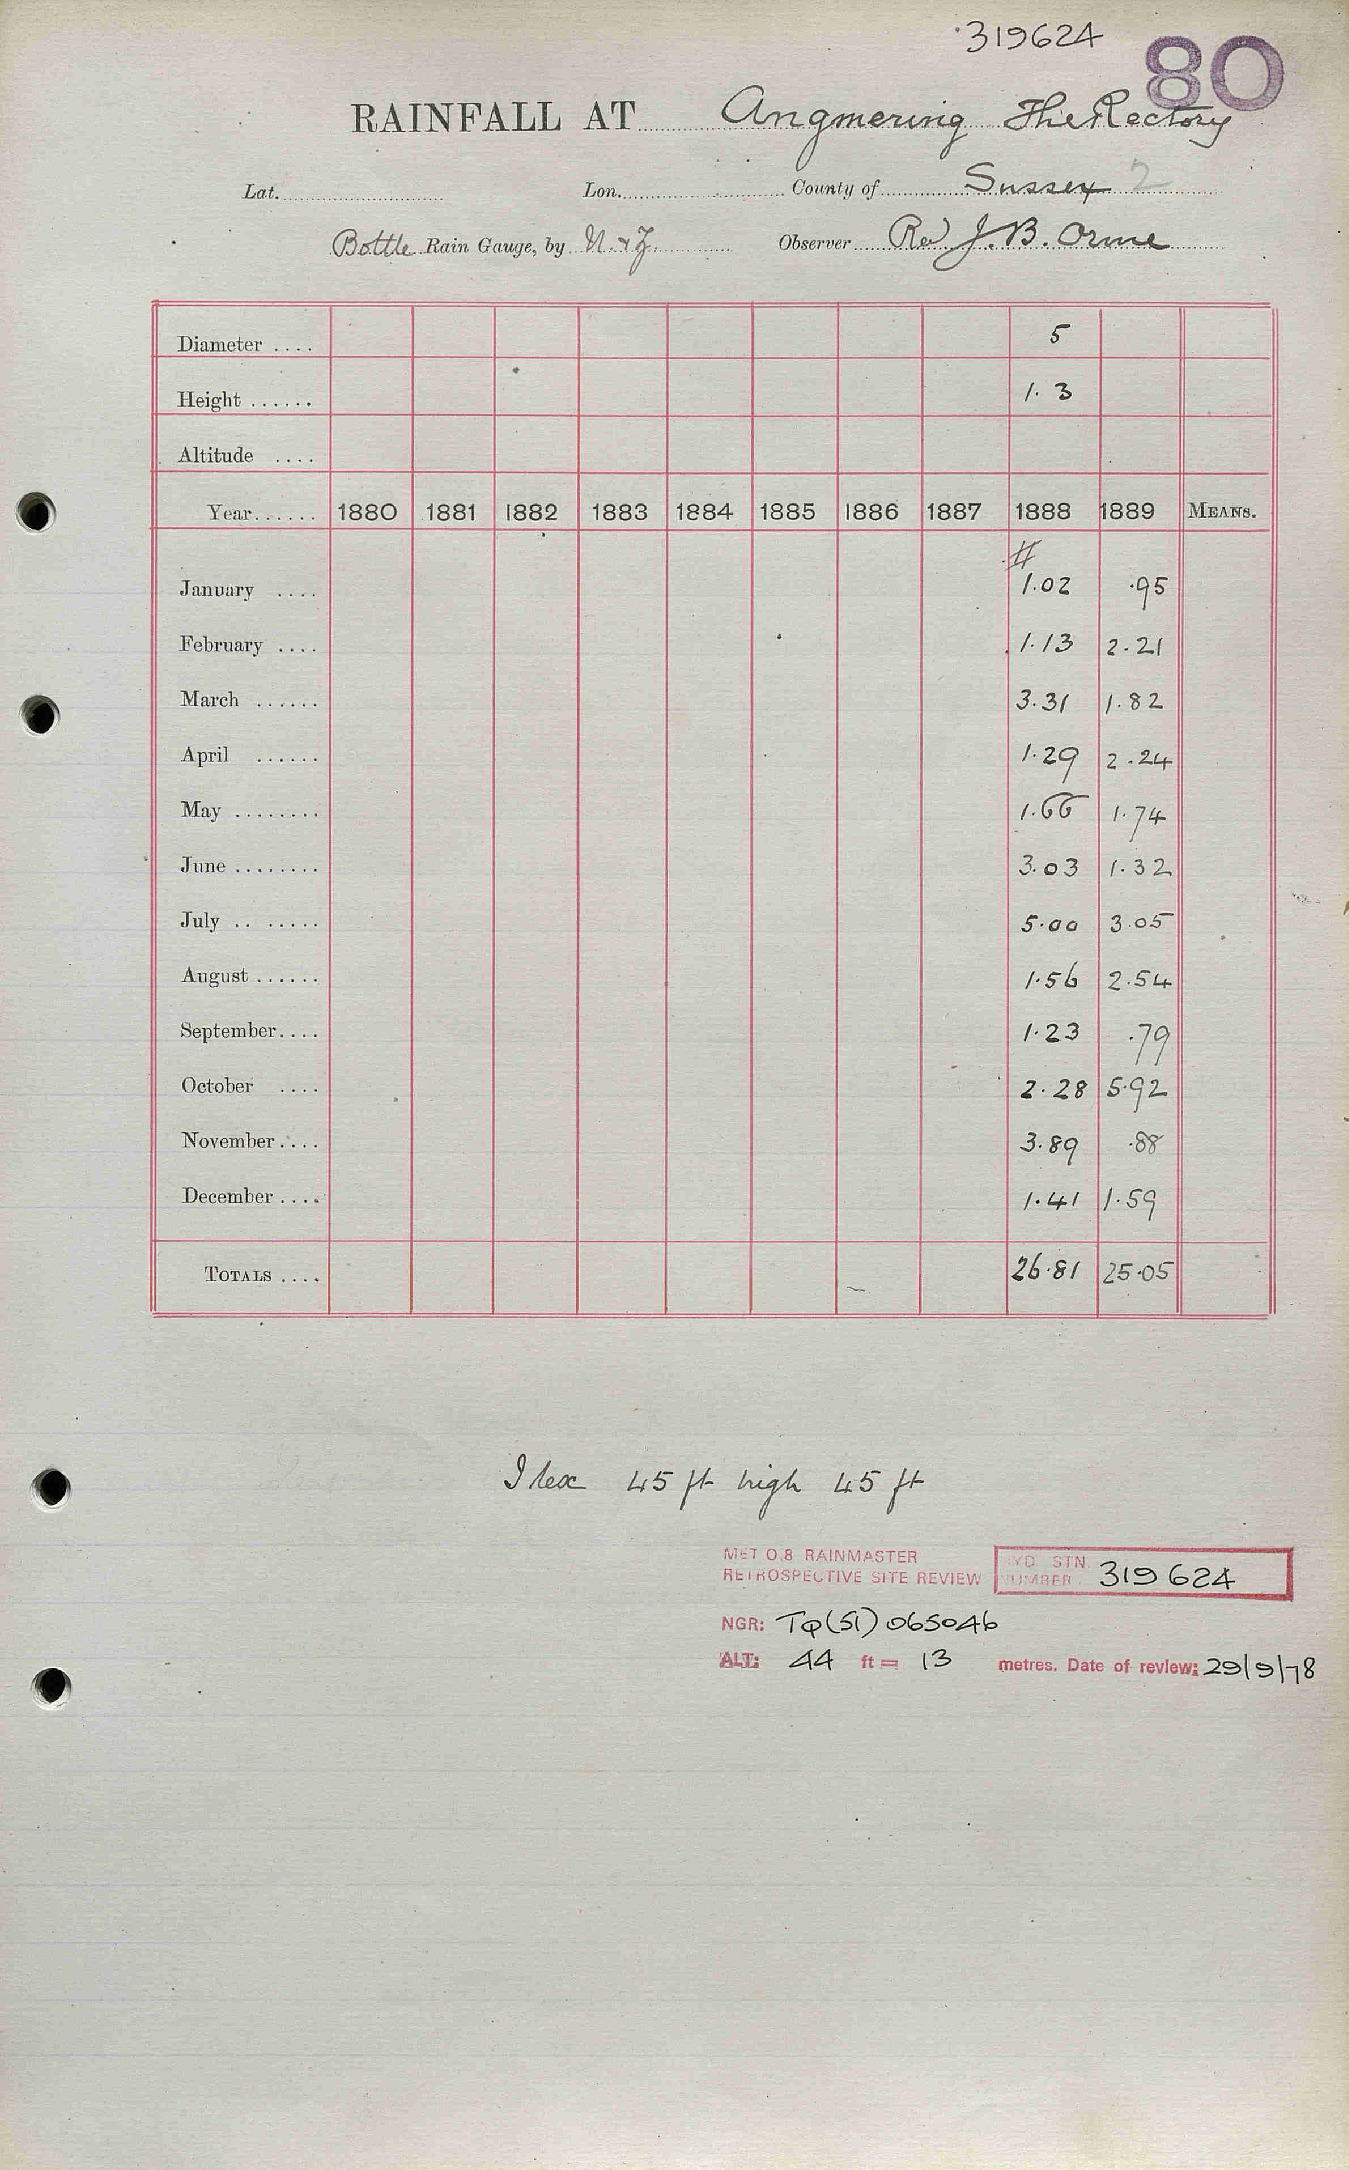 319624
80
RAINFALL AT Angmering The Rectory
Lat. Lon. County of Sussex 2
Bottle Rain Gauge, by N. & Z. Observer Rev J. B. Orme
Diameter .... 5
Height ...... 1. 3
Altitude ....
Year...... 1880 1881 1882 1883 1884 1885 1886 1887 1888 1889 MEANS.
#
January .... 1.02 .95
February .... 1.13 2.21
March ...... 3.31 1.82
April ...... 1.29 2.24
May ........ 1.66 1.74
June ........ 3.03 1.32
July .. ..... 5.00 3.05
August ...... 1.56 2.54
September.... 1.23 .79
October .... 2.28 5.92
November.... 3.89 .88
December .... 1.41 1.59
TOTALS .... 26.81 25.05
Ilex 45 ft high 45 ft
MET O.8 RAINMASTER
RETROSPECTIVE SITE REVIEW
HYD. STN. NUMBER 319 624
NGR: TQ(51) 065046
ALT: 44 ft = 13 metres. Date of review: 29/9/78